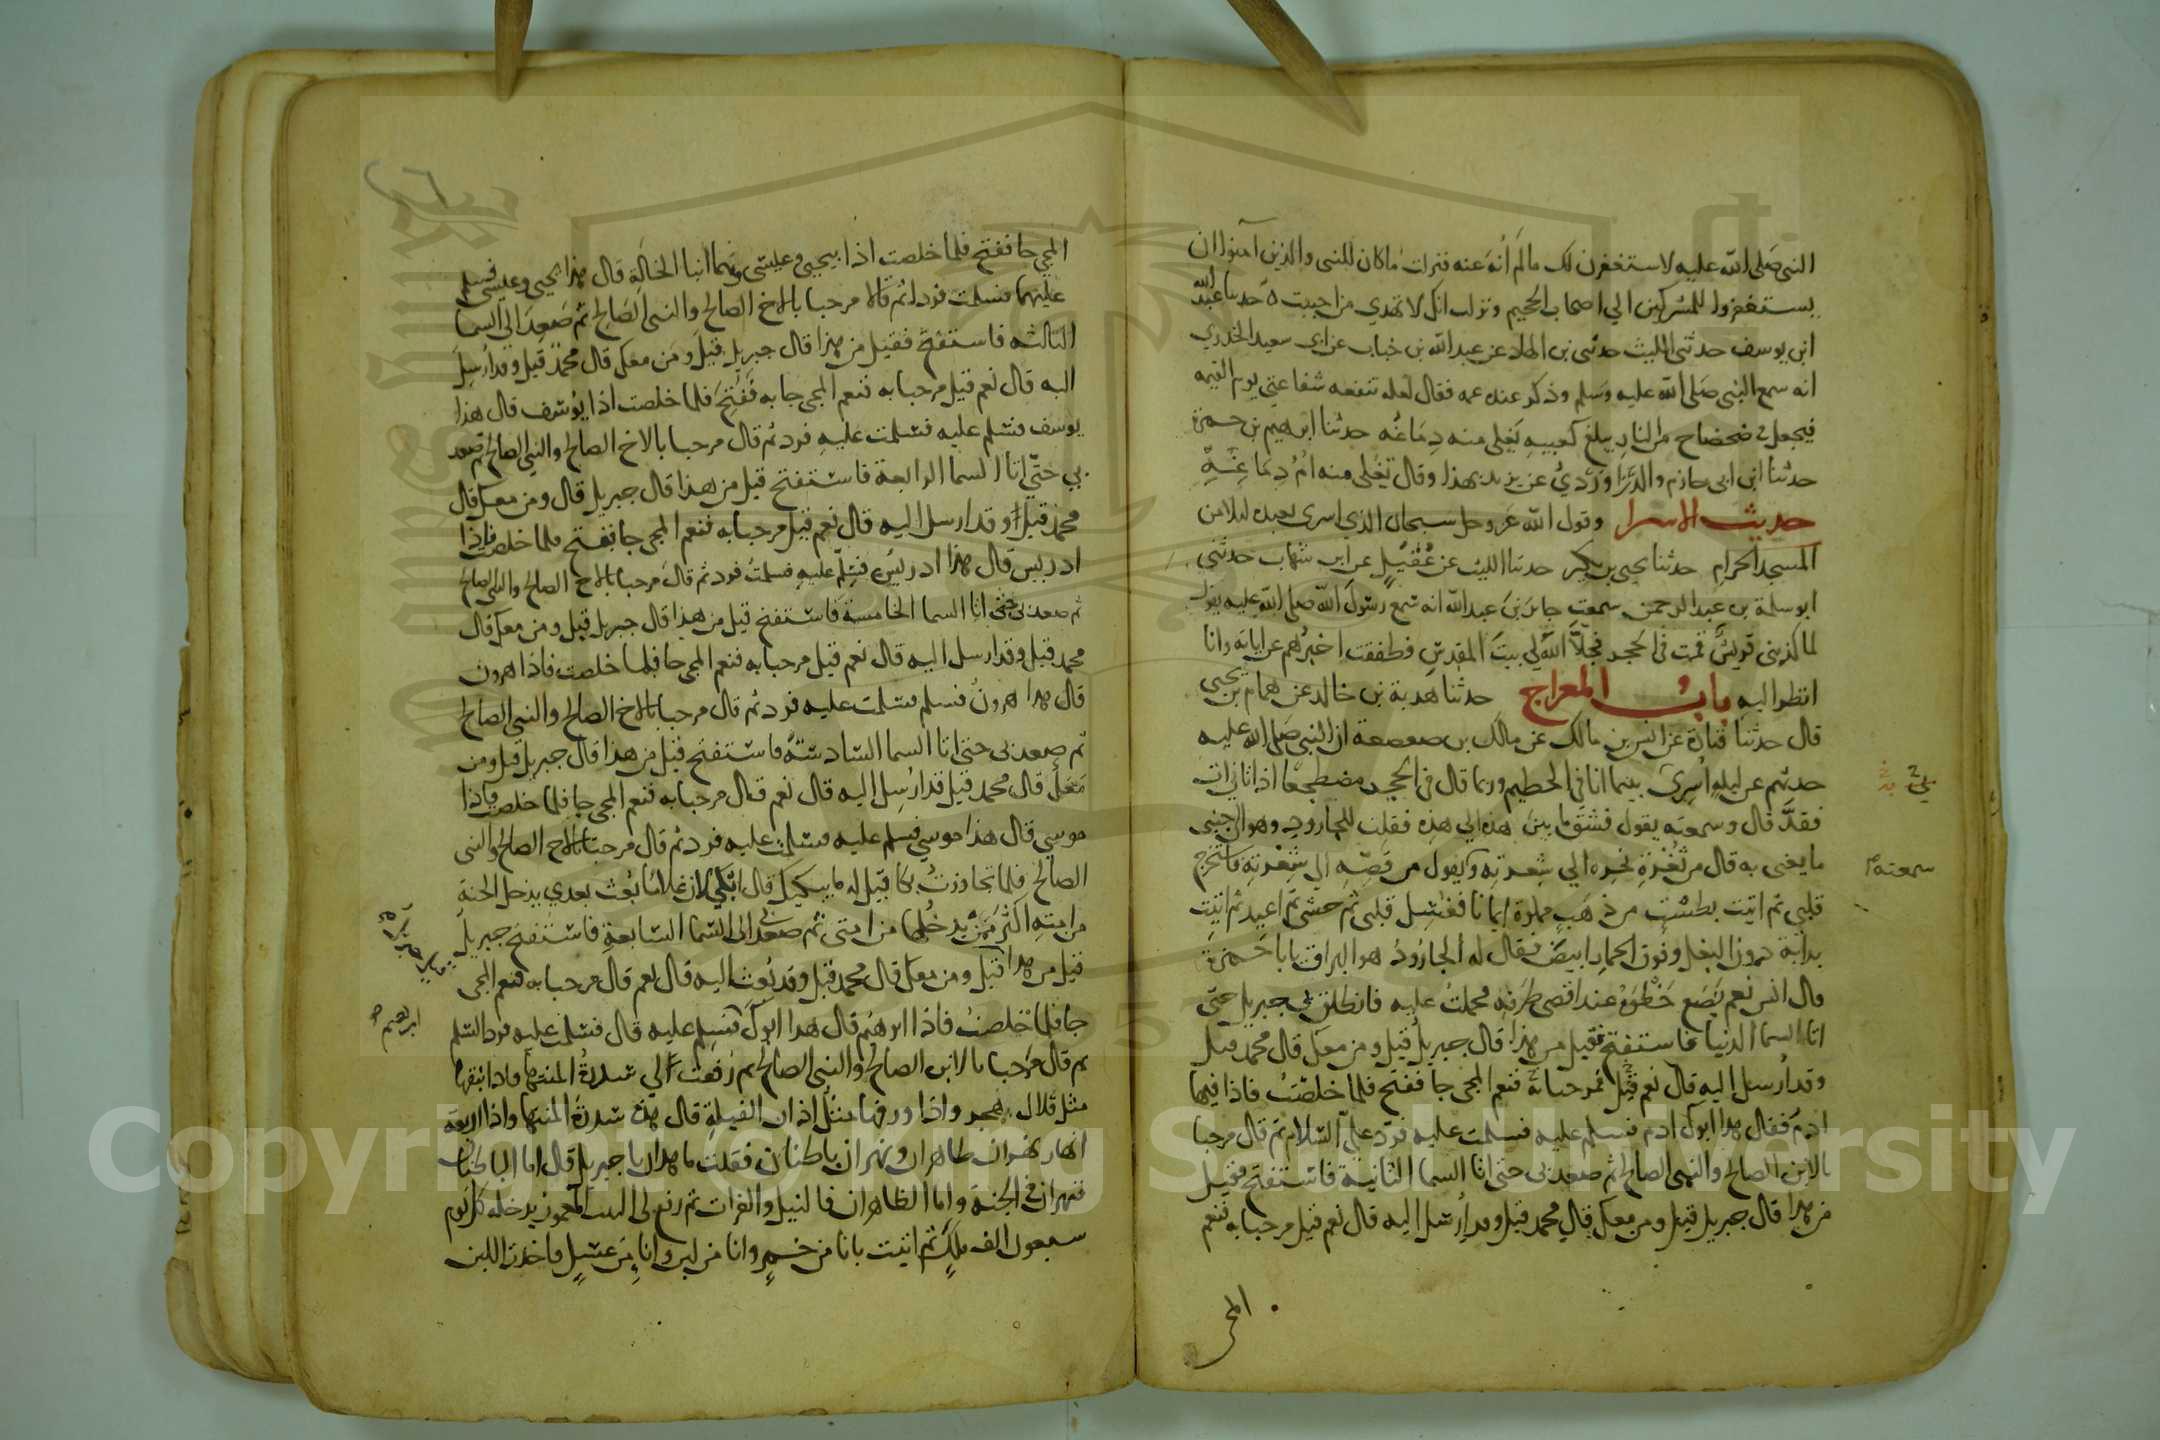 النبي صَلى الله عليه لاستغفرن لك مالم أُنهَ عنه فنزلت ما كان للنبي والذين آمنوا ان
يستغفروا للمشركين الي اصحاب الجحيم ونزلت انك لا تهدي من احببت حدثنا عبد الله
ابن يوسف حدثني الليث حدثني بن الهاد عن عبد الله بن خباب عن ابي سعيد الخدري
انه سمع النبي صَلى الله عليه وسَلم وذكر عنده عمه فقال لعله تنفعه شفاعتي يوم القيمه
فيجعل في ضحضاح من النار يبلغ كعبيه يَغلي منه دِمَاغُه حدثنا ابرهيم بن حمزة
حدثنا ابن ابي حازم والدَّرَاوَرْديُّ عن يزيد بهذا وقال تغلي منه امُّ دِمَاغِهِ
حديث الاسرا وقول الله عَز وجل سبحان الذي اسرى بعبده ليلا من
المسجد الحرام حدثنا يحيى بن بكير حدثنا الليث عن عُقَيْلٍ عن ابن شهاب حدثني
ابو سلمة بن عبد الرحمن سمعت جابر بن عبد الله انه سَمع رسُول الله صلى الله عليه يقول
لما كذبني قريشٌ قمت في الحجر فجَلَّا الله لي بيتَ المقدسِ فطفقت اخبرُهم عن اياته وانا
انظر اليه بابُ المعراج حدثنا هدبة بن خالد عن همام بن يحيى
قال حدثنا قتادة عن انس بن مالك عن مالك بن صعصعة ان النبي صَلى الله عليه
حدثهم عن ليلةِ اُسْرِيَ بينما انا في الحطيم وربما قال في الحجر مضطجعًا اذ اتاني ات
فقدَّ قال وسمعته يقول فشقَّ ما بين هذه الي هذه فقلت للجارود وهو الي جنبي
ما يعني به قال من ثُغْرَةِ نحره الي شِعرته ويقول من قَصِّهِ الى شِعْرته فاستخرج
قلبي ثم اتيت بطَسْتٍ من ذهَبٍ مملوة ايمانا فغسل قلبي ثم حشي ثم اعيد ثم اتيت
بدابة دون البغل وفوق الحمار ابيض فقال له الجارُودُ هو البراق يابا حَمزة
قال انس نعم يَضَع خَطْوَهُ عند اقصى طرَفهِ فحملتُ عليه فانطلق بي جبريل حتى
اتا السما الدنيا فاستفتح فقيل من هذا قال جبريلُ قيل ومن معك قال محمد قيل
وقد اُرسل اليه قال نعم قيل مَرحبا به فنعم المجي جا ففتح فلما خلصتُ فاذا فيها
ادم فقال هذا ابوك ادم فسلم عليه فسلمت عليه فردَّ عليَّ السَّلام ثم قال مرحبا
بالابن الصالح والنبي الصالح ثم صعد بي حتى اتا السما الثانية فاستفتح فقيل
من هذا قال جبريل قيل ومن معك قال محمد قيل وقد اُرسل اليه قال نعم قيل مرحبا به فنعم
سمعته
المجي
المجي جا ففتح فلما خلصت اذا بيحيى وعيسَى وهما ابنا الخَالةِ قال هذا يحيى وعيسى فسلم
عليهما فسلمت فردا ثم قالا مرحبا بالاخ الصالح والنبي الصَالح ثم صَعِدَ الي السما
الثالثه فاستفتحَ فقيل من هذا قال جبريل قيلَ ومَن معك قال محمدٌ قيل وقد اُرسِلَ
اليه قال نعم قيل مرحبا به فنعم المجي جا به فَفُتِحَ فلما خلصت اذا يوُسُف قال هذا
يوسف فسَلم عليه فسَلمت عليهِ فرد ثم قال مرحبا بالاخ الصالح والنبي الصالح ثم صعد
بي حتّى اتا السما الرابعة فاستفتح قيل من هذا قال جبريل قال ومن معك قال
محمد قيل اوقد ارسل اليه قال نعم قيل مرحبا به فنعم المجي جا ففتح فلما خلصت فاذا
ادريس قال هذا ادريسُ فسَلّم عليهِ فسلمتُ فرد ثم قالَ مرحبا بالاخ الصالح والنبي الصالح
ثم صعد بي حتى اتا السما الخامسة فاستفتح قيل من هذا قال جبريل قيل ومن معك قال
محمد قيل وقد ارسل اليه قال نعم قيل مرحبا به فنعم المجي جا فلما خلصت فاذا هرون
قال هذا هرونُ فسلم فسلمت عليه فرد ثم قال مرحبا بالاخ الصالح والنبي الصالح
ثم صعد بي حتى اتا السما السَّادسَة فاستفتح قيل من هذا قال جبريل قيل ومن
مَعكَ قال محمد قيل قد ارُسِل اليه قال نعم قال مرحبا به فنعم المجي جا فلما خلصت فاذا
موسي قال هذا موسي فسلم عليه فسلمت عليه فرد ثم قال مرحبا بالاخ الصالح والنبي
الصالح فلما تجاوزتُ بكا قيل له ما يبكيك قال ابكي لان غلامًا بُعث بعدي يدخل الجنة
من امتهِ اكثرُ ممَنْ يدخُلها من امتي ثم صعد بي الى السَّما السَّابعةِ فاستفتح جبريلُ
قيل من هذا قيل ومن معك قال محمد قيل وقد بُعث اليه قال نعم قال مرحبا به فنعم المجي
جا فلما خلصتُ فاذا ابرهيم قال هذا ابوك فسَلم عليه قال فسَلمت عليه فرد السَّلم
ثم قال مَرحبا بالابن الصالح والنبي الصالح ثم رُفعَت الي سِدرةُ المنتهَا فاذا نبقها
مثل قلال هجر واذا ورقها مثل اذان الفيلةِ قال هذه سدرةُ المنتها واذا اربعة
انهار نهران ظاهران ونهران باطنان فقلت ما هذان يا جبريل قال اما الباطنان
فنهران في الجنة واما الظاهران فالنيل والفرات ثم رفع لي البيت المعمور يدخله كل يوم
سبعون الف مَلكٍ ثم اتيت بانا من خمرٍ وانا من لبن وانا من عسَلٍ فاخذت اللبن
ابرهيم
Copyright © King Saud University